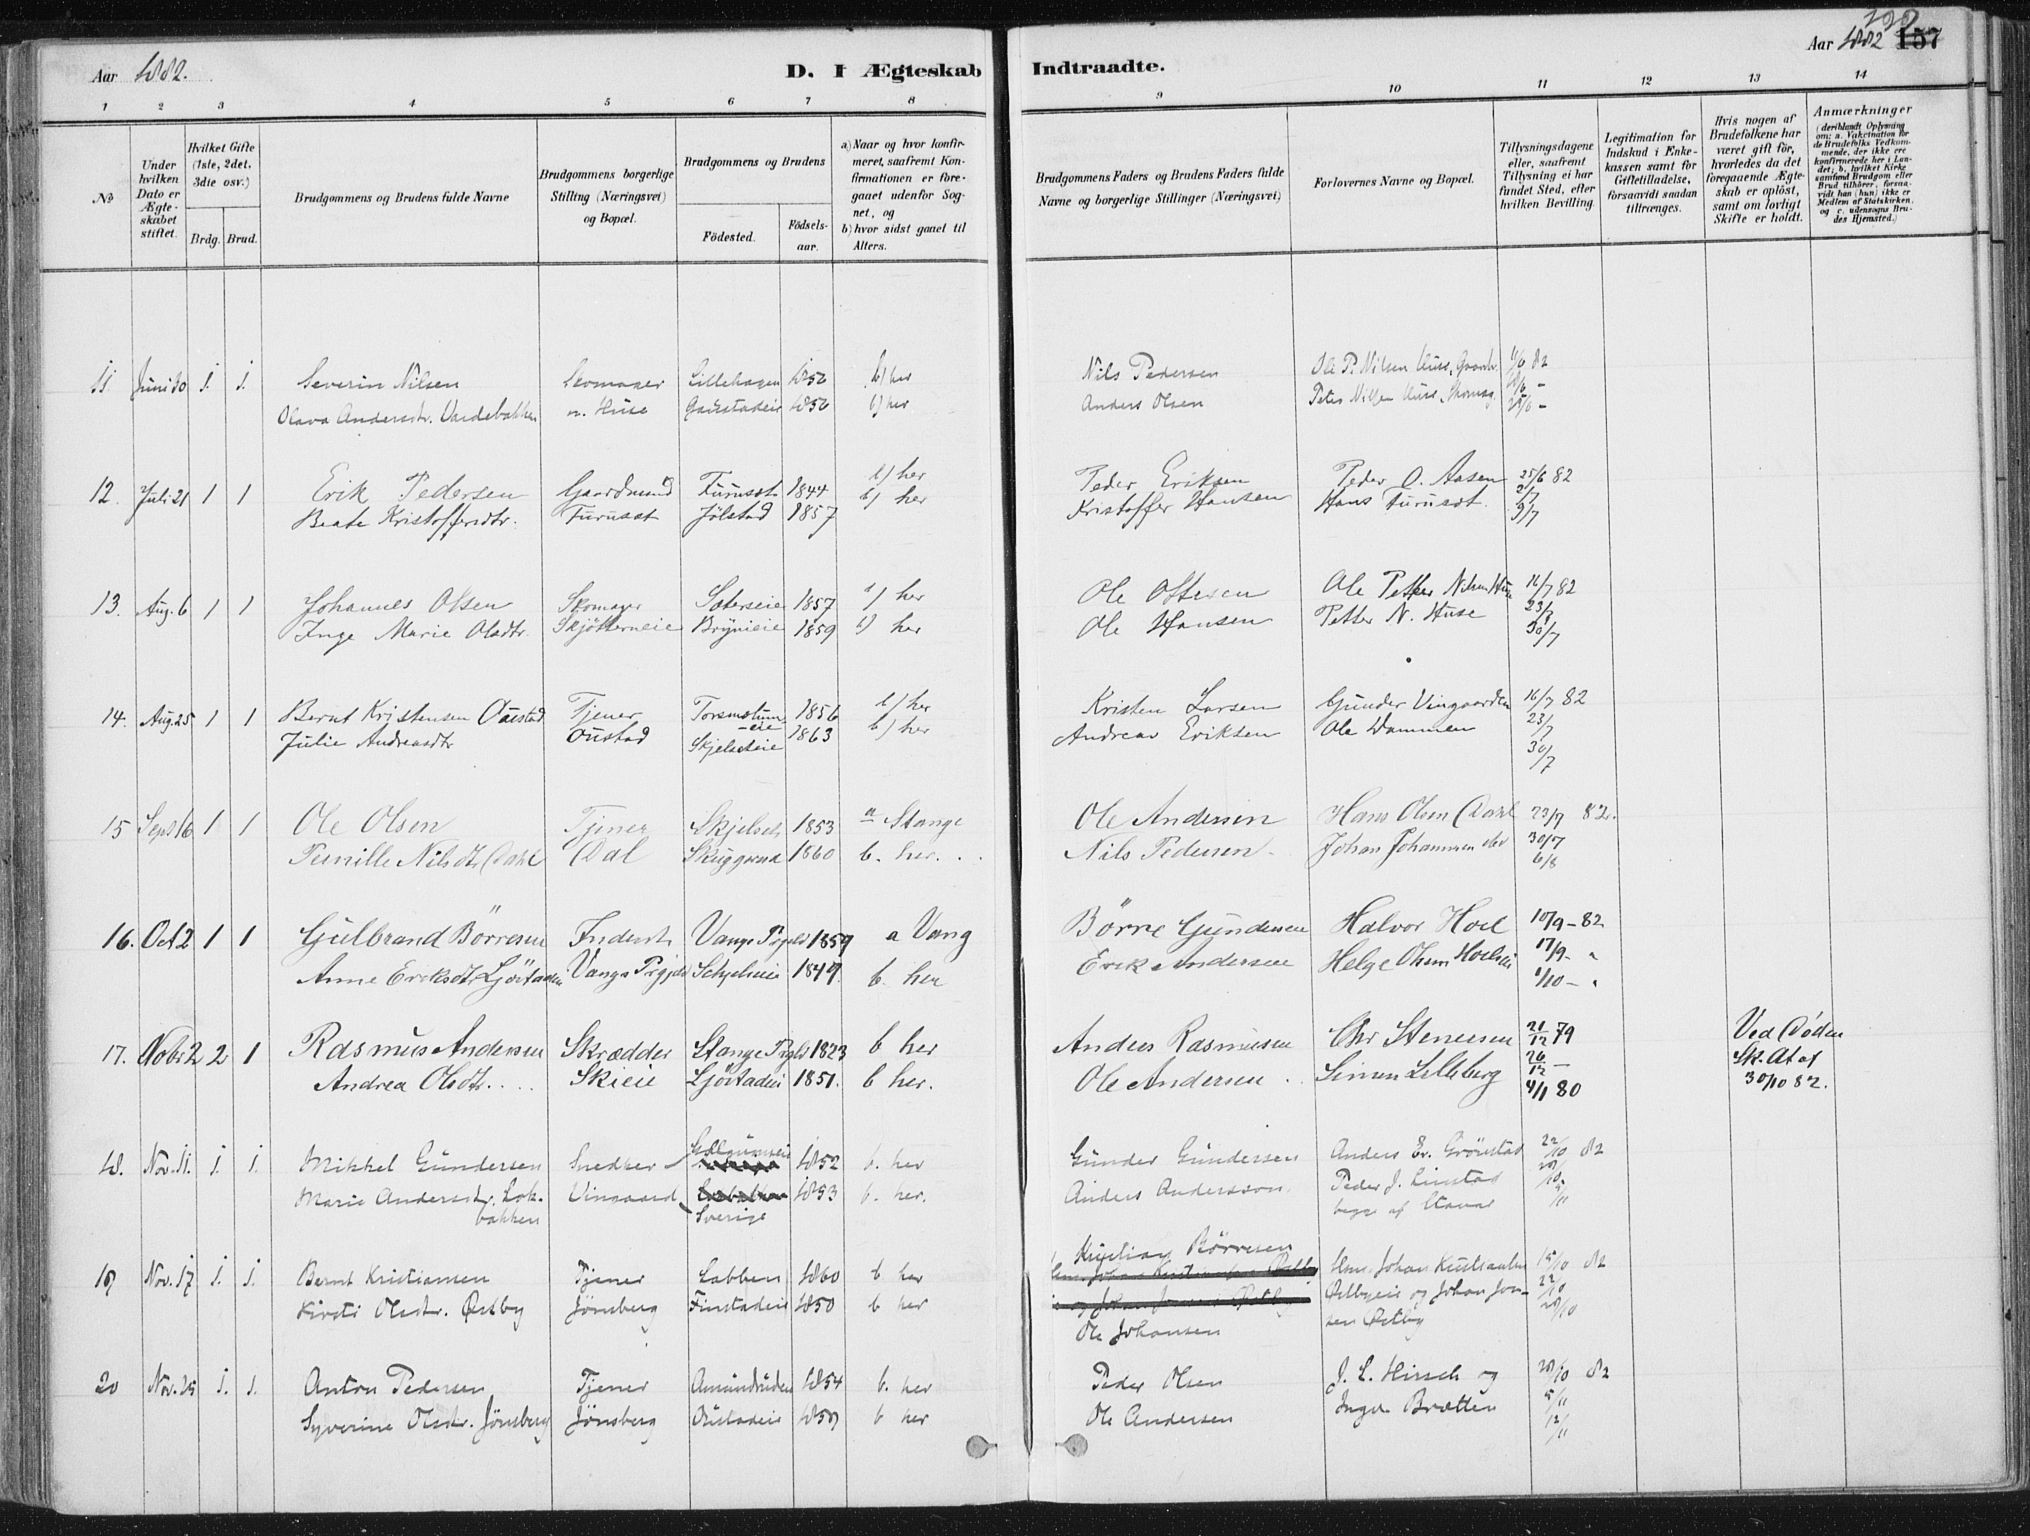 Aar 1882.
D. I Ægteskab Indtraadte.
Aar 1882 157
1 2 3 4 5 6 7 8 9 10 11 12 13 14
No
Under hvilken Dato er Ægteskabet stiftet.
Hvilket Gifte (1ste, 2det, 3die osv.)
Brdg. Brud.
Brudgommens og Brudens fulde Navne
Brudgommens borgerlige Stilling (Næringsvei) og Bopæl.
Brudgommens og Brudens
Fødested.
Fødselsaar.
a) Naar og hvor konfirmeret, saafremt Konfirmationen er foregaaet udenfor Sognet, og
b) hvor sidst gaaet til Alters.
Brudgommens Faders og Brudens Faders fulde Navne og borgerlige Stillinger (Næringsvei)
Forlovernes Navne og Bopæl.
Tillysningsdagene eller, saafremt Tillysning ei har fundet Sted, efter hvilken Bevilling.
Legitimation for Indskud i Enkekassen samt for Giftetilladelse, forsaavidt saadan tiltrænges.
Hvis nogen af Brudefolkene har været gift før, hvorledes da det foregaaende Ægteskab er opløst, samt om lovligt Skifte er holdt.
Anmærkninger (deriblandt Oplysning om: a. Vakcination for de Brudefolks Vedkommende, der ikke ere konfirmerede her i Landet; b. hvilket Kirkesamfund Brudgom eller Brud tilhører, forsaavidt han (hun) ikke er Medlem af Statskirken, og c. udensogns Brudes Hjemsted.)
11 Juni 30 1. 1. Severin Nilsen Skomager Lillehagen 1856 b) her Nils Pedersen Ole P. Nilsen Huse, 11/6 82
Olava Andersdtr. Vardebakken n. Huse Gaustadeie 1856 b) her Anders Olsen Peter Nilsen Huse, Skomag. 18/6 -
25/6 -
12. Juli 21 1 1 Erik Pedersen Gaardmand Furuset 1844 b) her Peder Eriksen Peder O. Aasen 25/6 82
Beate Kristoffersdtr. Furuset Jølstad 1857 b) her Kristoffer Hansen Hans Furuset. 2/7
9/7
13. Aug. 6 1 1 Johannes Olsen Skomager Sæterseie 1857 b) her Ole Ottesen Ole Petter Nilsen Huse 16/7 82
Inge Marie Olsdtr. Skjøtterueie Brynieie 1859 b) her Ole Hansen Petter N. Huse 23/7
30/7
14. Aug. 25 1 1 Bernt Kristensen Oustad Tjener Torsmotuen- 1856 b) her Kristen Larsen Gunder Vingaarden 16/7 82
eie
Julie Andreasdtr Oustad Skjelseteie 1863 b) her Andreas Eriksen Ole Dammen 23/7
30/7
15 Sept 16 1 1 Ole Olsen Tjener Skjelset 1853 a Stange Ole Andersen Hans Olsen Dahl 23/7 82.
Pernille Nilsdtr. Dahl Dal 1860 b. her. Nils Pedersen Johan Johannesen 30/7
6/8
16. Oct 2 1 1 Gulbrand Børresen Inderst Vangs Prgjeld 1859 a Vang Børre Gundersen Halvor Hoel 10/9-82
Anne Eriksdtr Ljøstadeie Vangs Prgjeld 1849. b. her Erik Andersen Helge Olsen Hoelseie 17/9- "
1/10- "
17. Nobr 2 2 1 Rasmus Andersen Skrædder Stange Prgld 1823 b her Anders Rasmusen Chr Stenersen 21/12 79 Ved Døden
Andrea Olsdtr. Skieie Ljøstadeie 1851. b her. Ole Andersen Simen Lilleberg 26/12 - Sk. At af
4/1 80 30/10 82.
18. Nov. 11. 1. 1. Mikkel Gundersen Snedker 1852 b. her Gunder Gundersen Anders Er. Grønstad 22/10 82
Marie Andersdtr. Lok- Vingaard 1853 b. her. Anders Andersson Peder J. Linstad 29/10
bakken Sverige begge af Stavar 5/11
19 Nov. 17 1. 1. Bernt Kristiansen Tjener Labben 1860 b her Kristian Børresen Hans Johan Kristiansen 15/10 82
Kirsti Olsdtr. Østby Jønsberg Finstadeie 1850 b her Østbyeie og Johan Jon- 22/10
Ole Johansen sen Østby 29/10
20 Nov. 25 1. 1. Anton Pedersen Tjener Amundruden 1854 b. her Peder Olsen J. L. Hirsch og 29/10 82
Syverine Olsdtr. Jønsberg Jønsberg Oustadeie 1859 b her Ole Andersen Inger Bratten 5/11
12/11